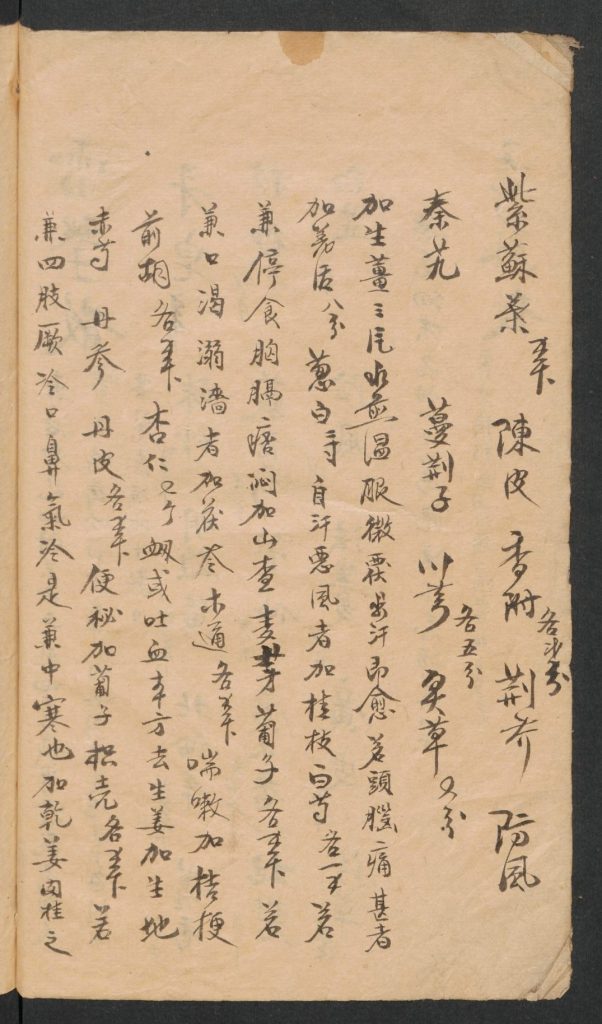 紫蘇葉 陳皮 香附 荆芥 防風
秦艽 蔓荆子 川芎 各五分 炙草
加生薑三片水煎温服微覆出汗即愈若頭腦痛甚者
加羌活八分葱白 自汗惡風者加桂枝白芍各一 若
兼停食胸膈痞悶加山查麦芽蔔子各 若
兼口渴溺濇者加茯苓木通各 喘嗽加桔梗
前胡各 杏仁 衂或吐血本方去生姜加生地
赤芍 丹參 丹皮各 便祕加蔔子枳壳各 若
兼四肢厥冷口鼻氣冷是兼中寒也加乾姜肉桂之